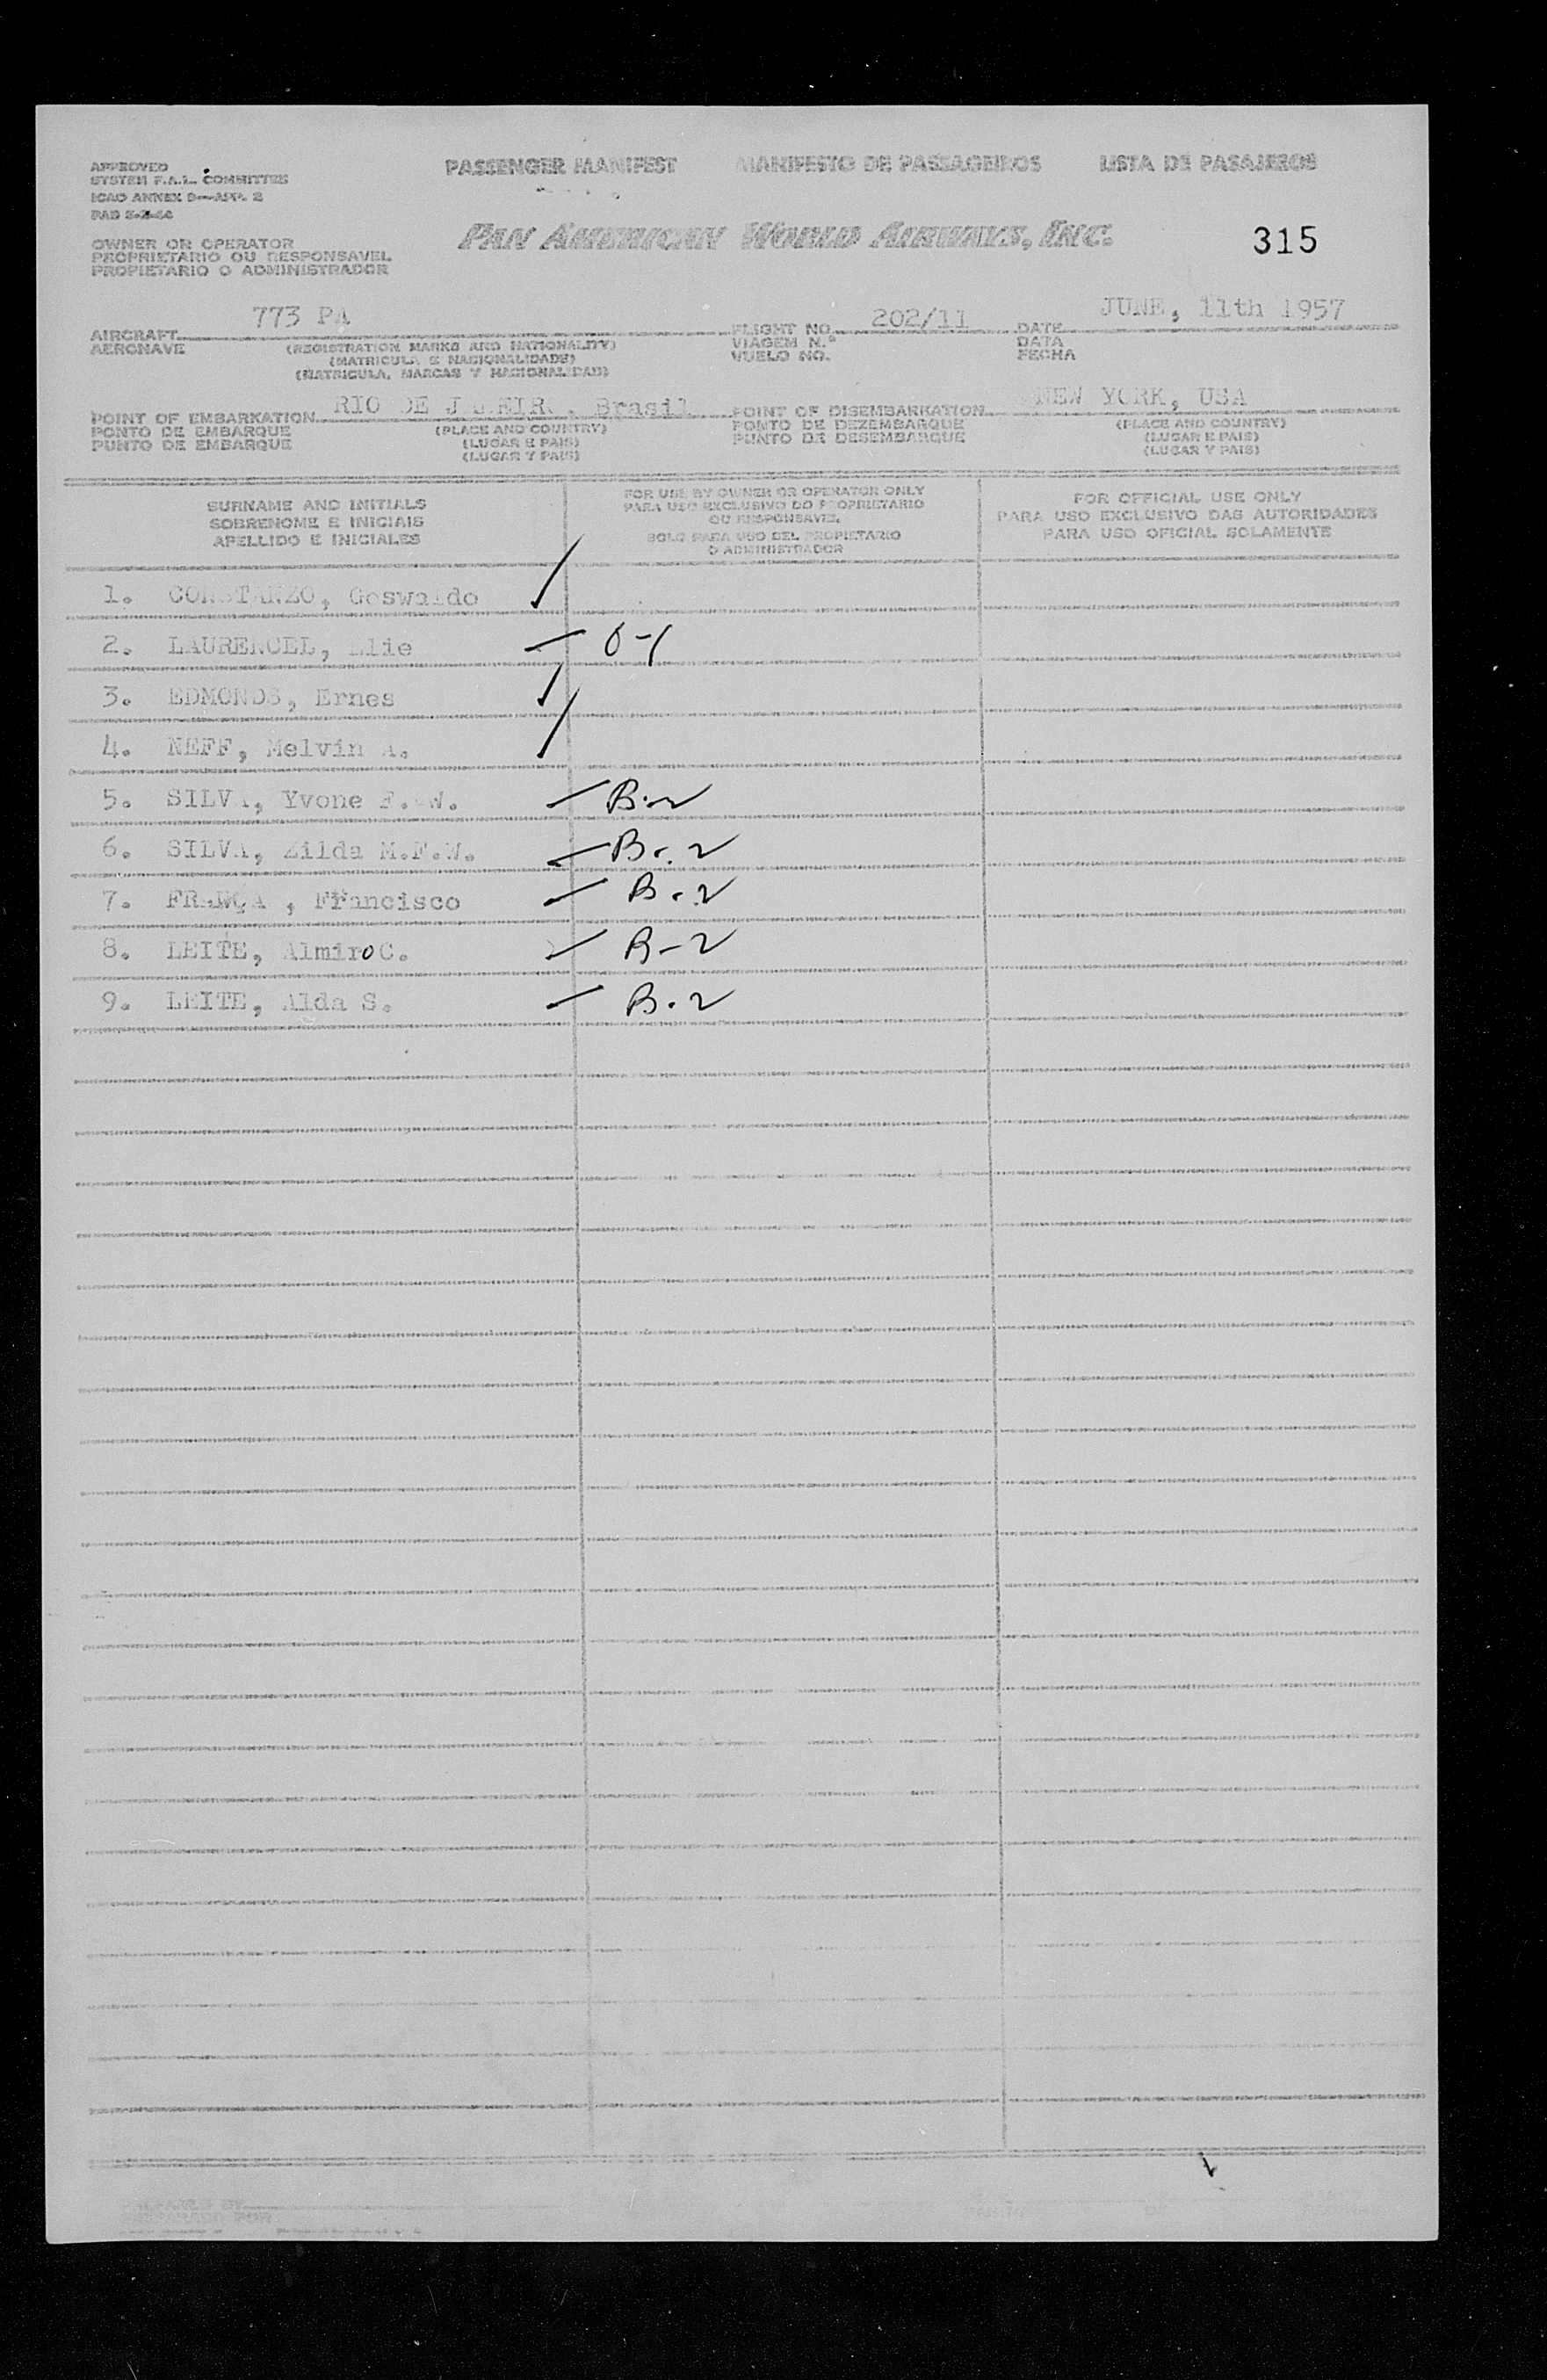 PASSENGER MANIFEST MANIFESTO DE PASSAGEIROS LISTA DE PASAJEROS
APPROVED
SYSTEM F.A.L. COMMITTEE
ICAO ANNEX 9—APP. 2
PAN AMERICAN WORLD AIRWAYS, INC. 315
OWNER OR OPERATOR
PROPRIETARIO OU RESPONSAVEL
PROPIETARIO O ADMINISTRADOR
AIRCRAFT 773 PA FLIGHT NO. 202/11 DATE JUNE, 11th 1957
AERONAVE (REGISTRATION MARKS AND NATIONALITY) VIAGEM N.º DATA
(MATRICULA E NACIONALIDADE) VUELO NO. FECHA
(MATRICULA, MARCAS Y NACIONALIDAD)
POINT OF EMBARKATION RIO DE JANEIRO, Brasil POINT OF DISEMBARKATION NEW YORK, USA
PONTO DE EMBARQUE (PLACE AND COUNTRY) PONTO DE DEZEMBARQUE (PLACE AND COUNTRY)
PUNTO DE EMBARQUE (LUGAR E PAIS) PUNTO DE DESEMBARQUE (LUGAR E PAIS)
(LUGAR Y PAIS) (LUGAR Y PAIS)
SURNAME AND INITIALS
SOBRENOME E INICIAIS
APELLIDO E INICIALES
FOR USE BY OWNER OR OPERATOR ONLY
PARA USO EXCLUSIVO DO PROPRIETARIO
OU RESPONSAVEL
SOLO PARA USO DEL PROPIETARIO
O ADMINISTRADOR
FOR OFFICIAL USE ONLY
PARA USO EXCLUSIVO DAS AUTORIDADES
PARA USO OFICIAL SOLAMENTE
1. CONSTANZO, Goswaldo
2. LAURENCEL, Elie
3. EDMONDS, Ernes
4. NEFF, Melvin A.
5. SILVA, Yvone F. W. B-2
6. SILVA, Zilda M.F.W. B-2
7. FRANÇA , Francisco B-2
8. LEITE, Almiro C. B-2
9. LEITE, Alda S. B-2